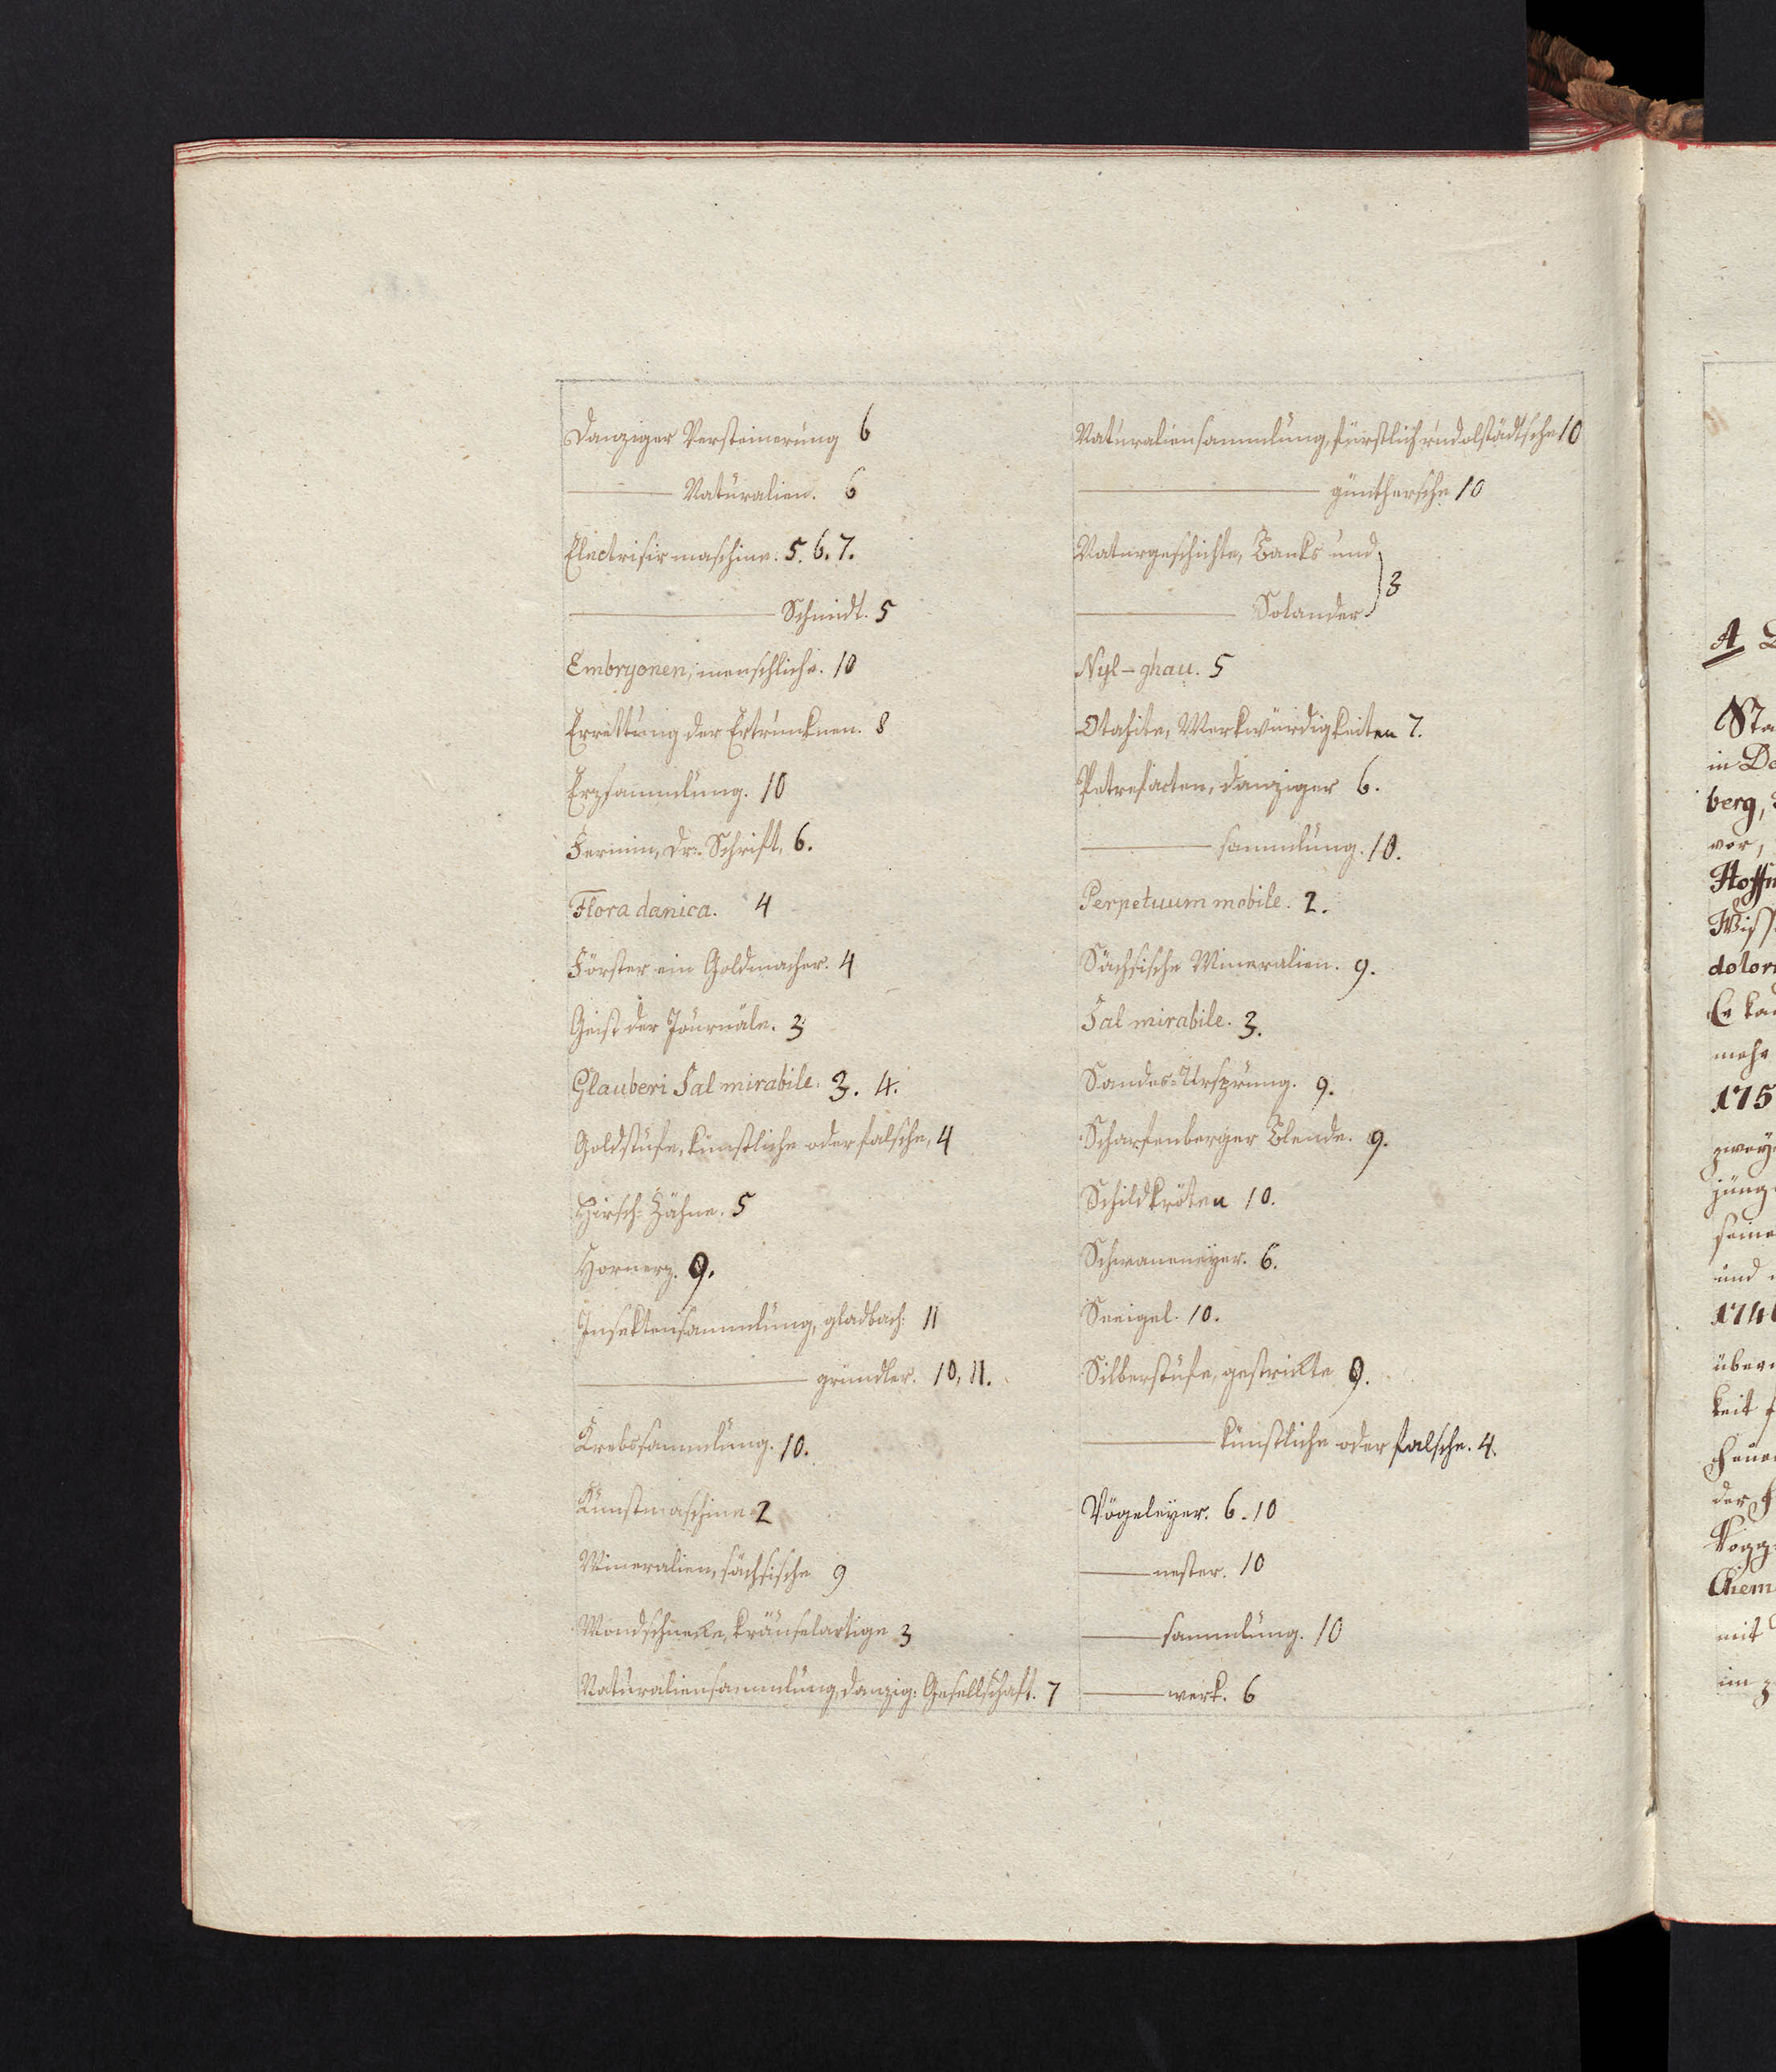 Danziger Versteinerung 6
——— Naturalien. 6
Electrisirmaschine. 5. 6. 7.
——— Schmidt. 5
Embryonen, menschliche. 10
Errettung der Ertrunknen. 8
Erzsammlung. 10
Fermin, Dr. Schrift. 6.
Flora danica. 4
Förster ein Goldmacher. 4
Geist der Journäle. 3
Glauberi Sal mirabile. 3. 4.
Goldstufe, künstliche oder falsche, 4
Hirsch-Zähne. 5
Hornerz. 9.
Insektensammlung, gladbach: 11
——— gründler. 10, 11.
Krebssammlung. 10.
Kunstmaschine 2
Mineralien, sächsische 9
Mondschnecke, kräuselartige 3
Naturaliensammlung, danzig: Gesellschaft. 7
Naturaliensammlung, fürstlich rudolstädtsche 10
——— günthersche 10
Naturgeschichte, Banks und
——— Solander } 3
Nyl-ghau. 5
Otahite, Merkwürdigkeiten 7.
Petrefacten, danziger 6.
——— sammlung. 10.
Perpetuum mobile. 2.
Sächsische Mineralien. 9.
Sal mirabile. 3.
Sandes-Ursprung. 9.
Scharfenberger Blende. 9.
Schildkröten 10.
Schwaneneyer. 6.
Seeigel. 10.
Silberstufe, gestrickte 9.
——— künstliche oder falsche. 4.
Vögeleyer. 6. 10
——— nester. 10
——— sammlung. 10
——— werk. 6
A
in
berg,
vor,
mehr
175
und
174
keit
der
mit
im